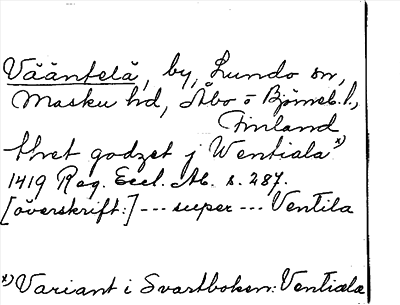 Vääntelä, by, Lundo sn,
Masku hd, Åbo o Björneb. l.,
Finland
thet godzet j Wentiala x)
1419 Reg. Eccl. Ab. s. 287.
[överskrift:] --- super --- Ventila
x) Variant i Svartboken: Ventiala